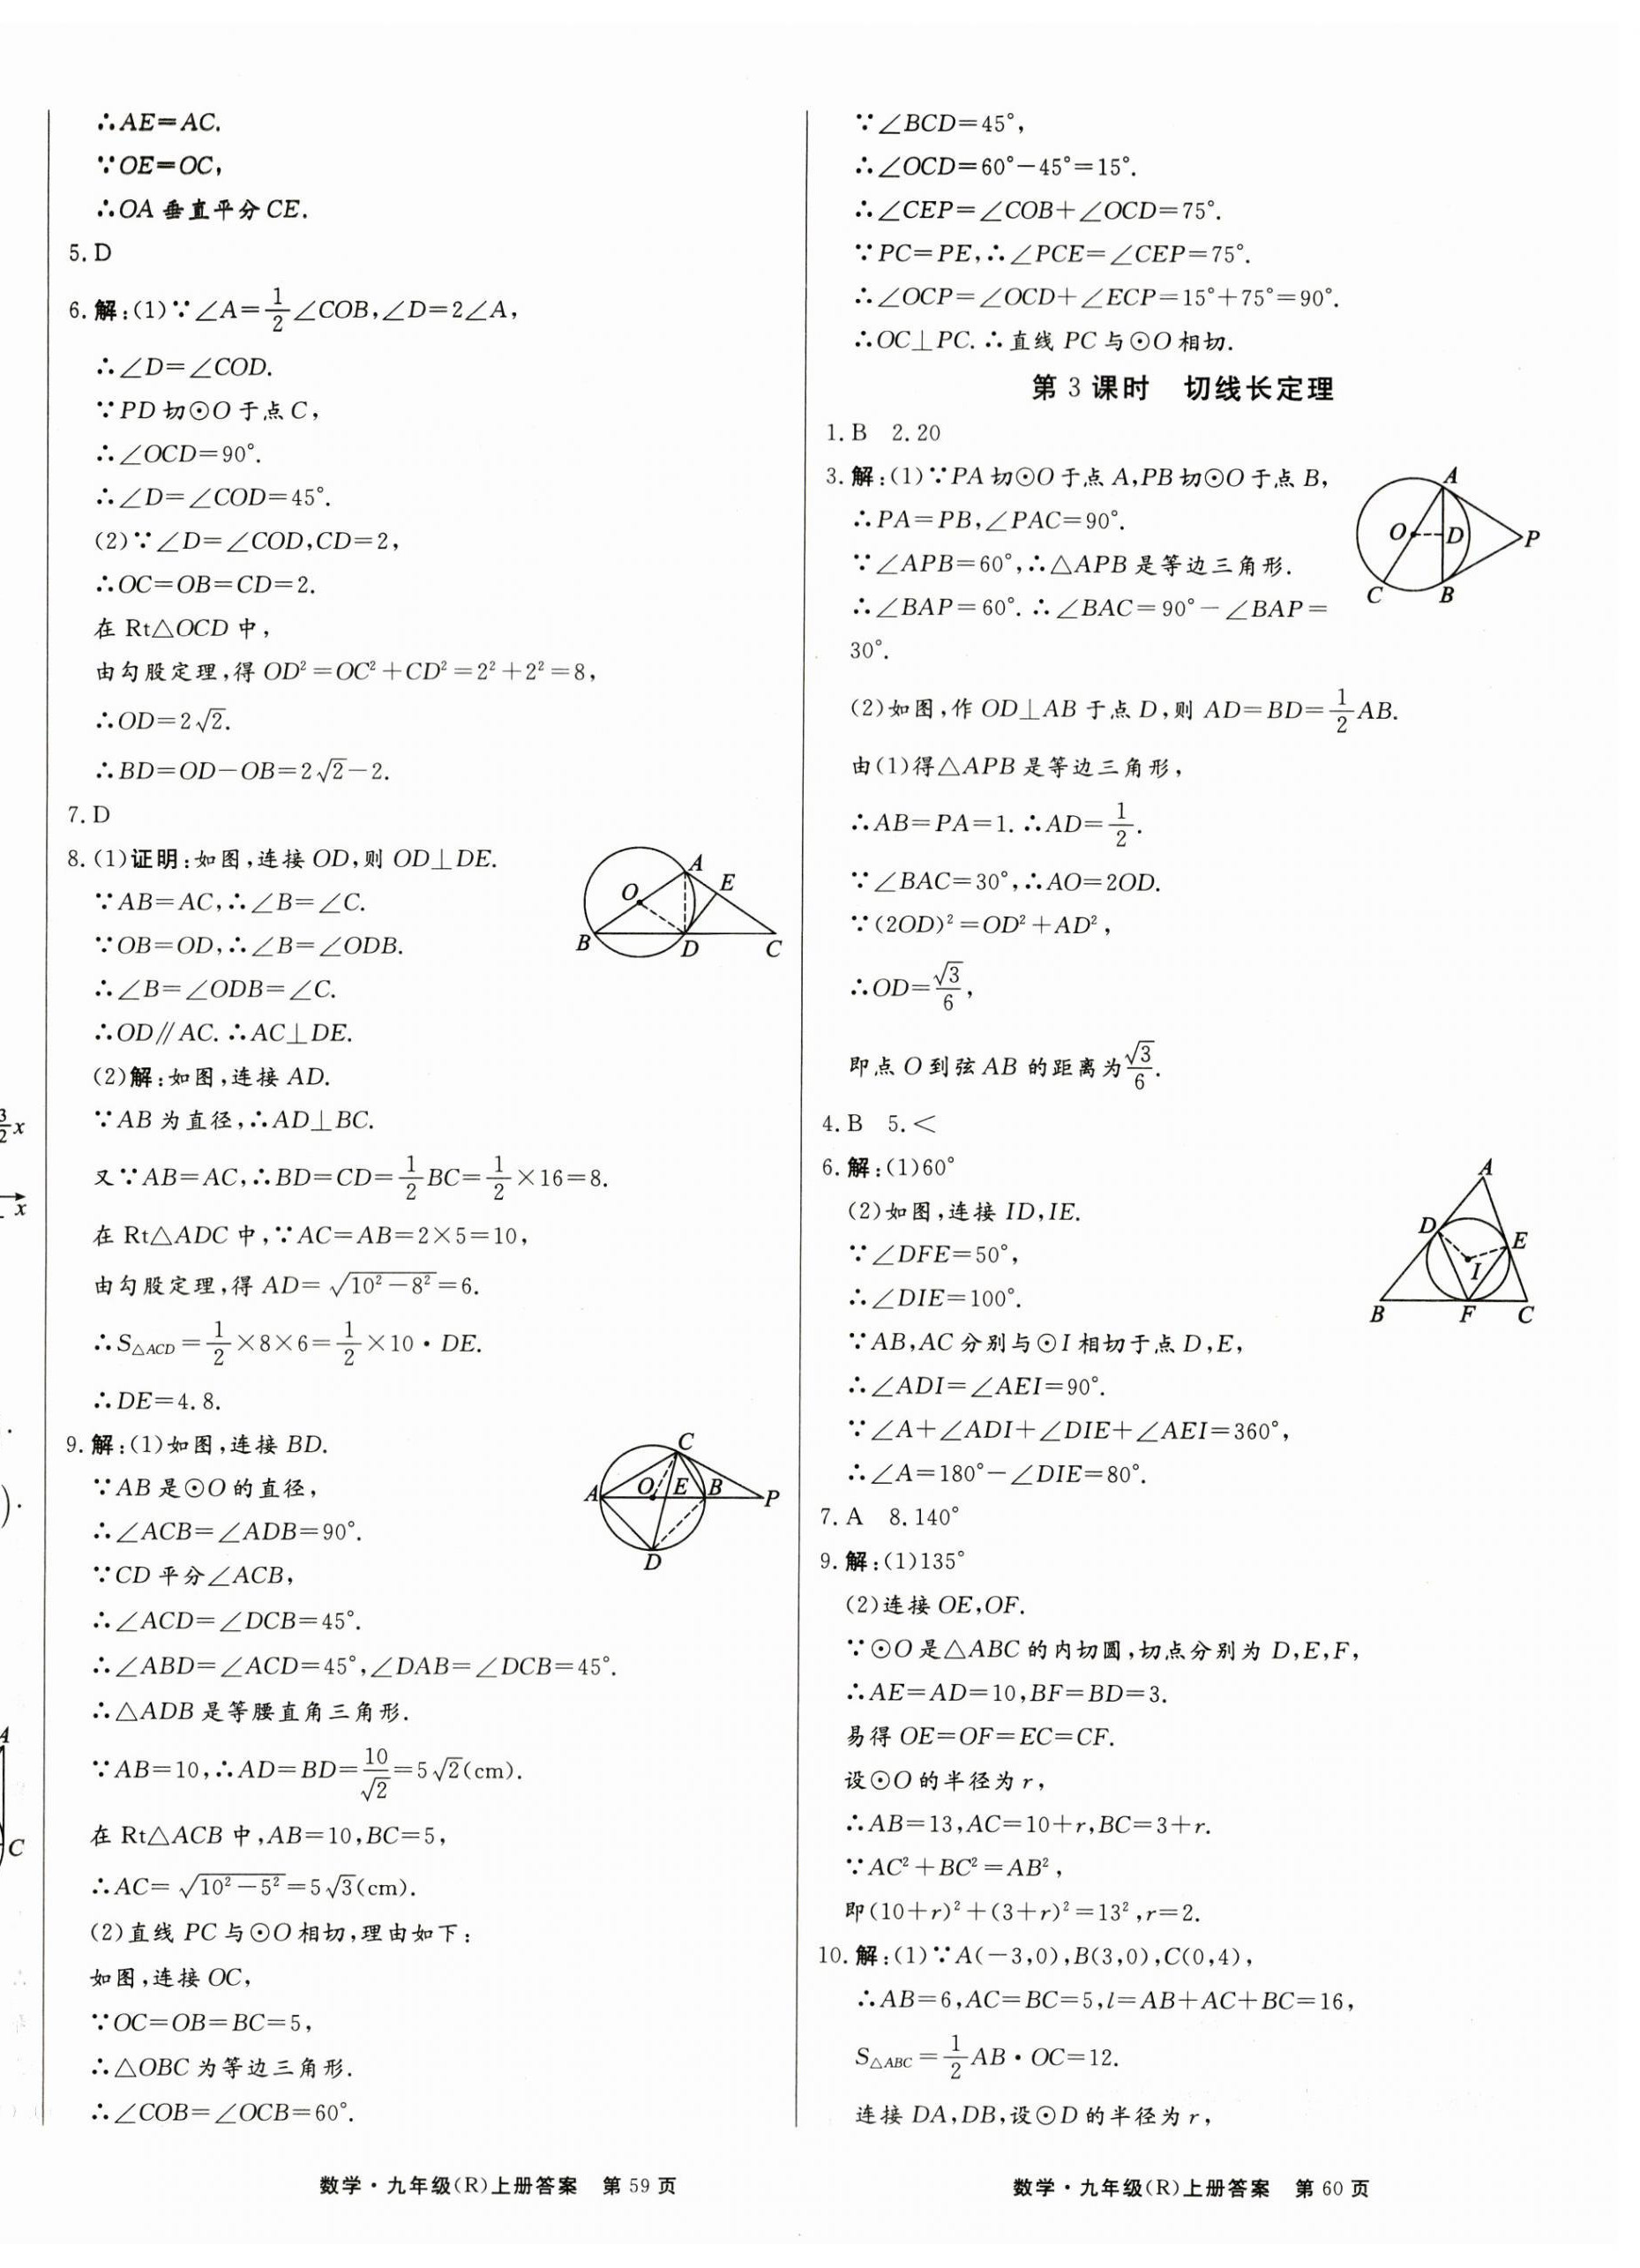 ∴AE=AC.
∵OE=OC,
∴OA垂直平分CE.
5. D
6. 解:(1)∵∠A=1/2∠COB,∠D=2∠A,
∴∠D=∠COD.
∵PD切⊙O于点C,
∴∠OCD=90°.
∴∠D=∠COD=45°.
(2)∵∠D=∠COD,CD=2,
∴OC=OB=CD=2.
在Rt△OCD中,
由勾股定理,得OD²=OC²+CD²=2²+2²=8,
∴OD=2√2.
∴BD=OD-OB=2√2-2.
7. D
8. (1)证明:如图,连接OD,则OD⊥DE.
∵AB=AC,∴∠B=∠C.
∵OB=OD,∴∠B=∠ODB.
∴∠B=∠ODB=∠C.
∴OD∥AC.∴AC⊥DE.
A
E
O
B
D
C
(2)解:如图,连接AD.
∵AB为直径,∴AD⊥BC.
又∵AB=AC,∴BD=CD=1/2BC=1/2×16=8.
在Rt△ADC中,∵AC=AB=2×5=10,
由勾股定理,得AD=√(10²-8²)=6.
∴S△ACD=1/2×8×6=1/2×10·DE.
∴DE=4.8.
9. 解:(1)如图,连接BD.
∵AB是⊙O的直径,
∴∠ACB=∠ADB=90°.
∵CD平分∠ACB,
C
A
O
E
B
P
D
∴∠ACD=∠DCB=45°.
∴∠ABD=∠ACD=45°,∠DAB=∠DCB=45°.
∴△ADB是等腰直角三角形.
∵AB=10,∴AD=BD=10/√2=5√2(cm).
在Rt△ACB中,AB=10,BC=5,
∴AC=√(10²-5²)=5√3(cm).
(2)直线PC与⊙O相切,理由如下:
如图,连接OC,
∵OC=OB=BC=5,
∴△OBC为等边三角形.
∴∠COB=∠OCB=60°.
数学·九年级(R)上册答案 第59页
∵∠BCD=45°,
∴∠OCD=60°-45°=15°.
∴∠CEP=∠COB+∠OCD=75°.
∵PC=PE,∴∠PCE=∠CEP=75°.
∴∠OCP=∠OCD+∠ECP=15°+75°=90°.
∴OC⊥PC.∴直线PC与⊙O相切.
第3课时 切线长定理
1. B 2. 20
3. 解:(1)∵PA切⊙O于点A,PB切⊙O于点B,
∴PA=PB,∠PAC=90°.
∵∠APB=60°,∴△APB是等边三角形.
∴∠BAP=60°.∴∠BAC=90°-∠BAP=
30°.
A
O
D
P
C
B
(2)如图,作OD⊥AB于点D,则AD=BD=1/2AB.
由(1)得△APB是等边三角形,
∴AB=PA=1.∴AD=1/2.
∵∠BAC=30°,∴AO=2OD.
∵(2OD)²=OD²+AD²,
∴OD=√3/6,
即点O到弦AB的距离为√3/6.
4. B 5. <
6. 解:(1)60°
(2)如图,连接ID,IE.
∵∠DFE=50°,
∴∠DIE=100°.
A
D
E
I
B
F
C
∵AB,AC分别与⊙I相切于点D,E,
∴∠ADI=∠AEI=90°.
∵∠A+∠ADI+∠DIE+∠AEI=360°,
∴∠A=180°-∠DIE=80°.
7. A 8. 140°
9. 解:(1)135°
(2)连接OE,OF.
∵⊙O是△ABC的内切圆,切点分别为D,E,F,
∴AE=AD=10,BF=BD=3.
易得OE=OF=EC=CF.
设⊙O的半径为r,
∴AB=13,AC=10+r,BC=3+r.
∵AC²+BC²=AB²,
即(10+r)²+(3+r)²=13²,r=2.
10. 解:(1)∵A(-3,0),B(3,0),C(0,4),
∴AB=6,AC=BC=5,l=AB+AC+BC=16,
S△ABC=1/2AB·OC=12.
连接DA,DB,设⊙D的半径为r,
数学·九年级(R)上册答案 第60页